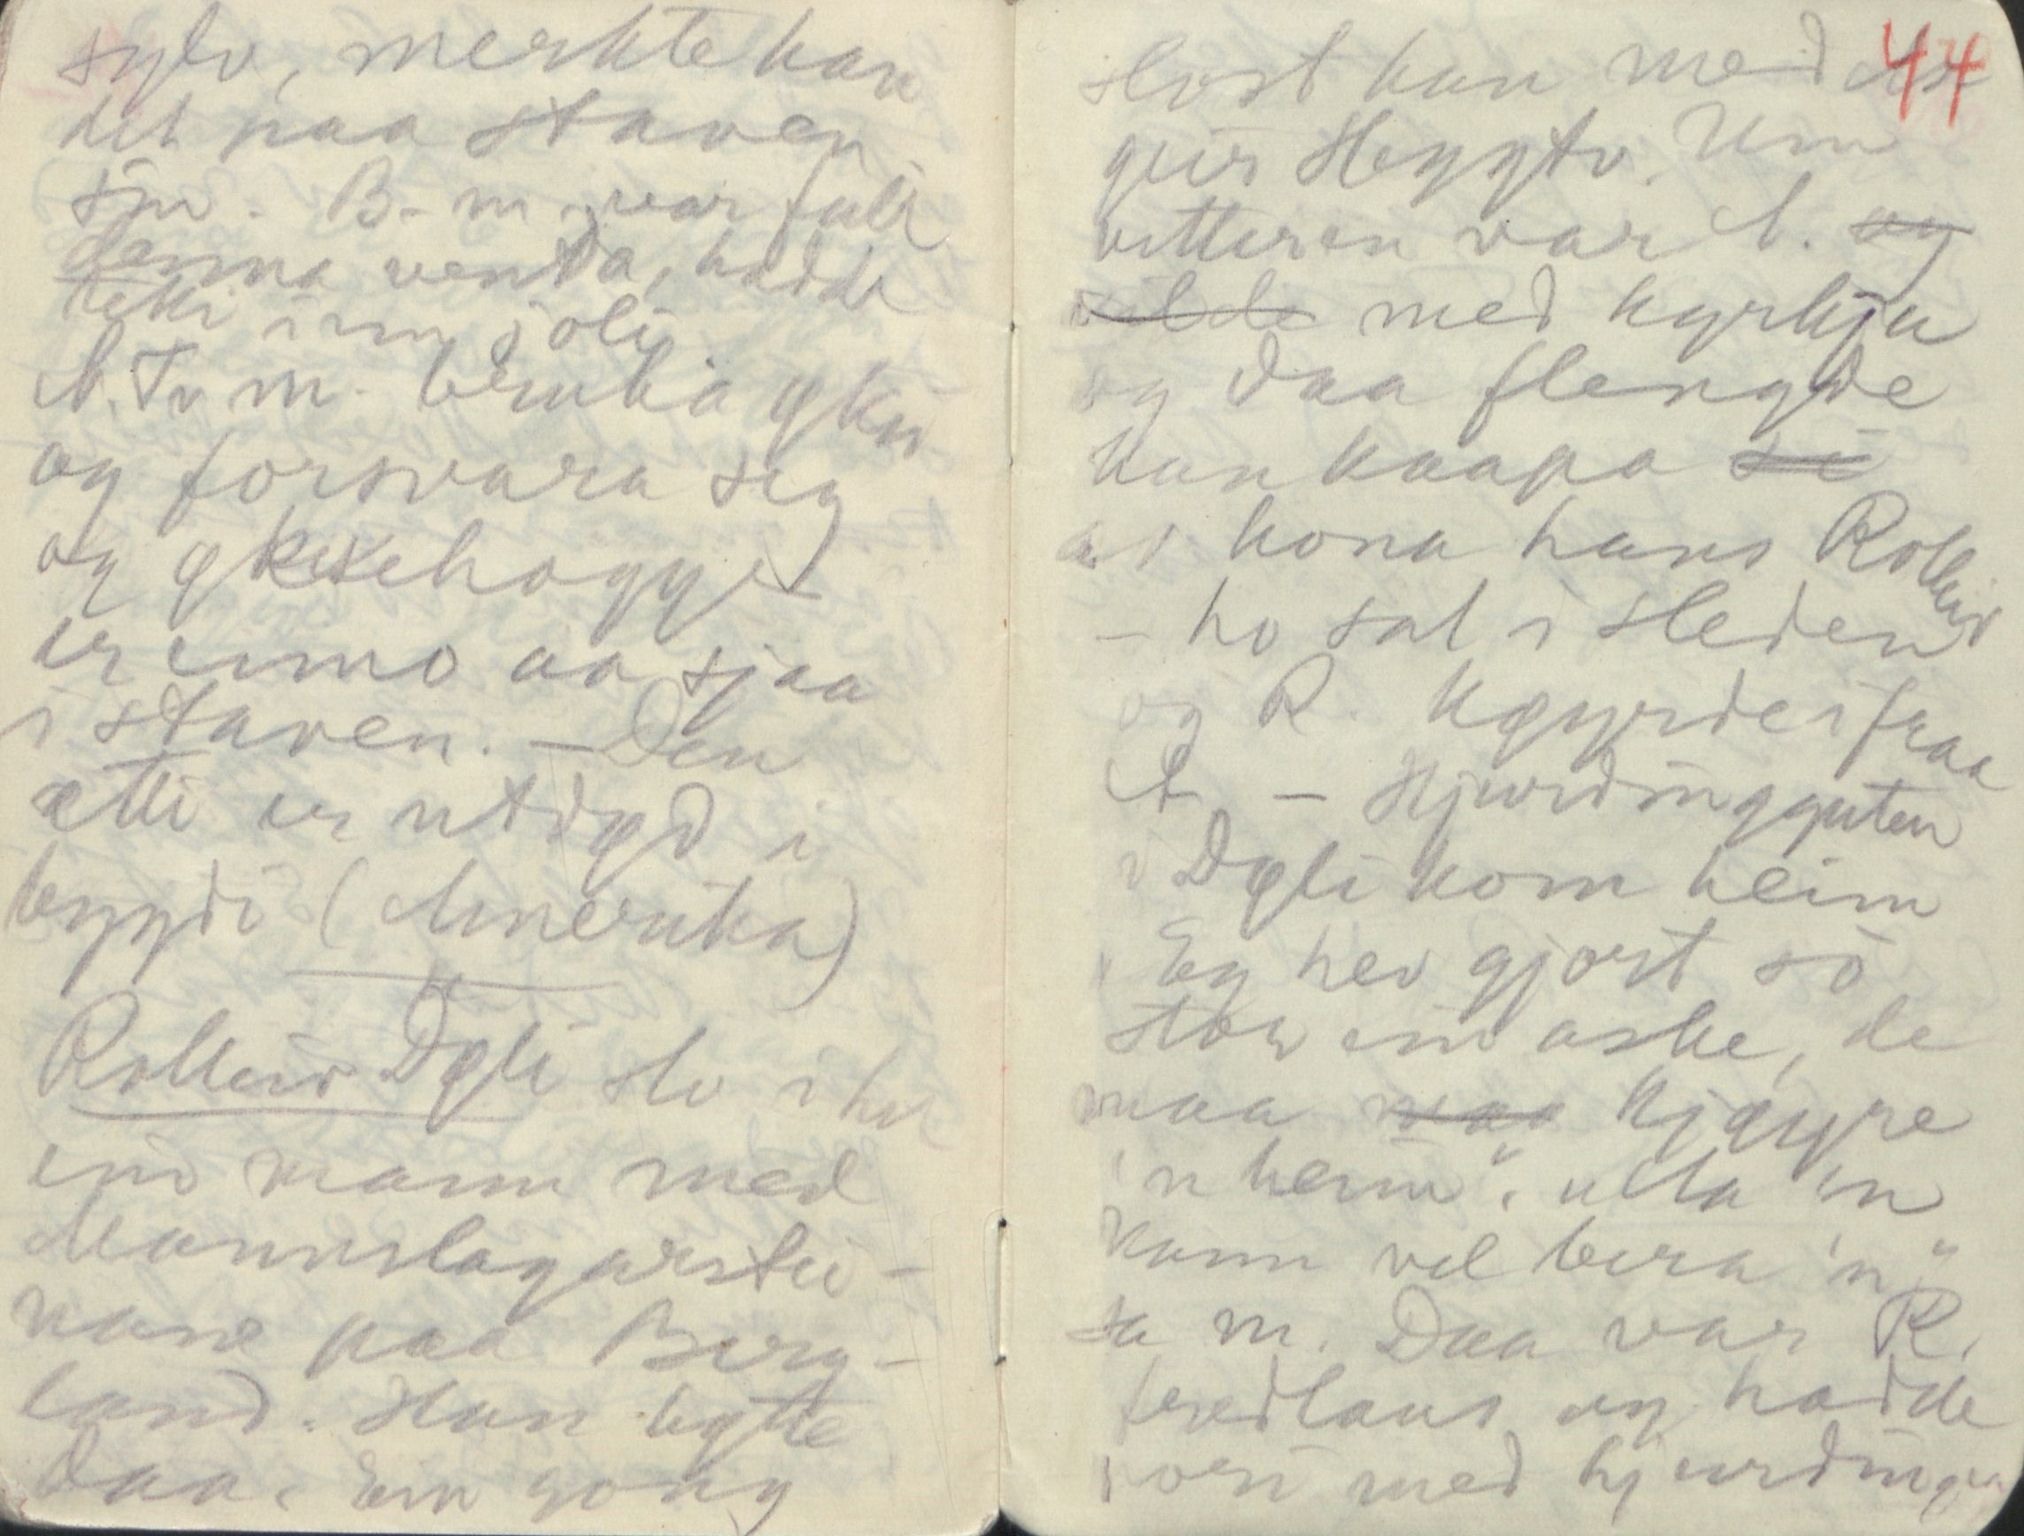 sylv, merkte han
det paa staven
sin. B-m. var full
denna venda, hadde
teki inn i joli
A. To m. bruka øksi
og forsvara seg
og øksehoggje
er einno aa sjaa
i staven. – Den
ætti er utdøyd i
bygdi (Amerika)
Rolleiv Døli slo i hel
ein mann med
Mannslagarstei-
nane paa Berg-
land. Han bytte
daa. Ein gong
slost han med As
44
geir Heggtv. Um
vetteren var A. og
vilde med kyrkja
og daa flengde
han kaapa si
av kona hans Rolleiv
– ho sat i sleden
og R. køyrde ifraa
A. – Hjuringguten
i Døli kom heim
Eg hev gjort so
stor ein aske, de
maa maa kjøyre
'n heim". "Alla 'n
kann vel bera 'n"
sa m. Daa var R.
fredlaus og hadde
vori med hjuringen